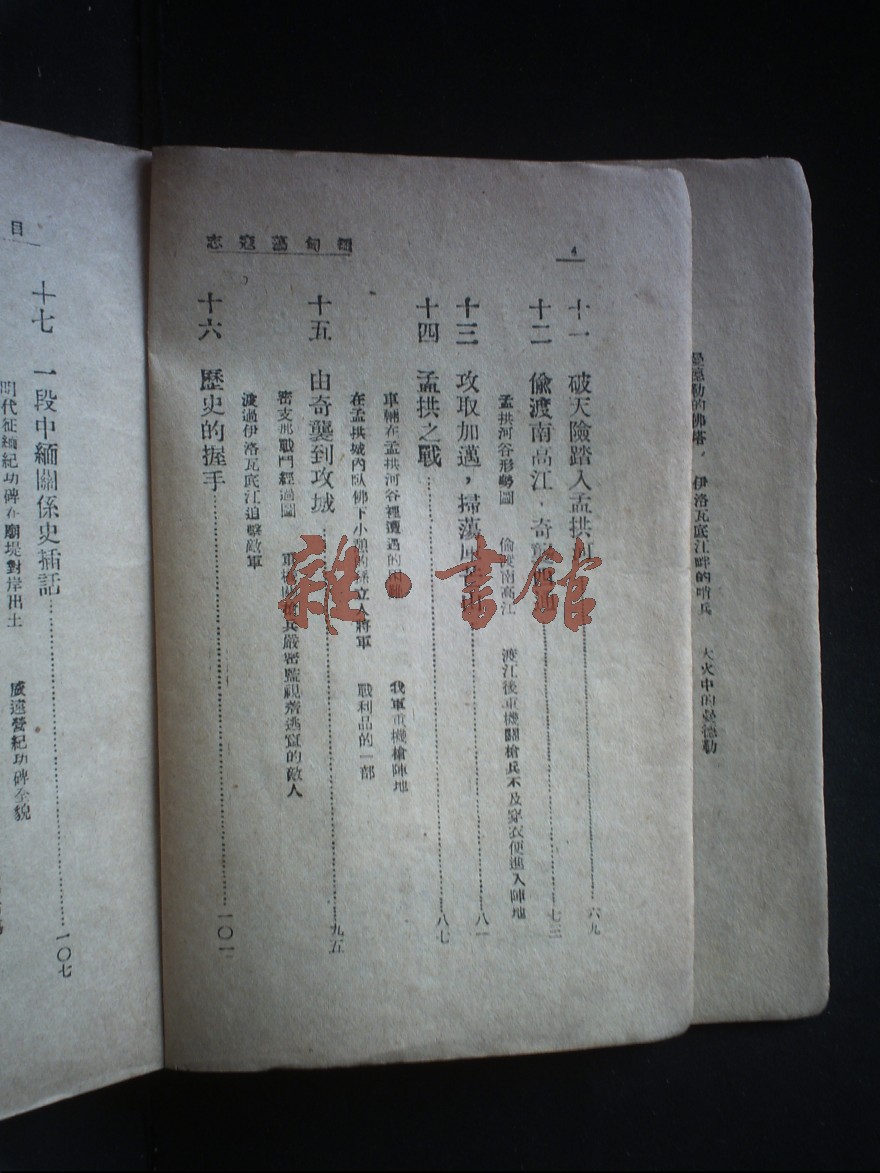 曼德勒的佛塔, 伊洛瓦底江畔的哨兵 大火中的曼德勒
4
緬甸蕩寇志
十一 破天險踏入孟拱河 六九
十二 偷渡南高江,奇 七三
孟拱河谷形勢圖 偷渡南高江 渡江後重機關槍兵不及穿衣便進入陣地
十三 攻取加邁,掃蕩 八一
十四 孟拱之戰 八七
車輛在孟拱河谷裡遭遇的困難 我軍重機槍陣地
在孟拱城內臥佛下小憩的孫立人將軍 戰利品的一部
十五 由奇襲到攻城 九五
密支那戰鬥經過圖 軍 兵嚴密監視着逃竄的敵人
渡過伊洛瓦底江追擊敵軍
十六 歷史的握手 一〇一
目
十七 一段中緬關係史插話 一〇七
明代征緬紀功碑在廟堤對岸出土 威遠營紀功碑全貌
雜·書館